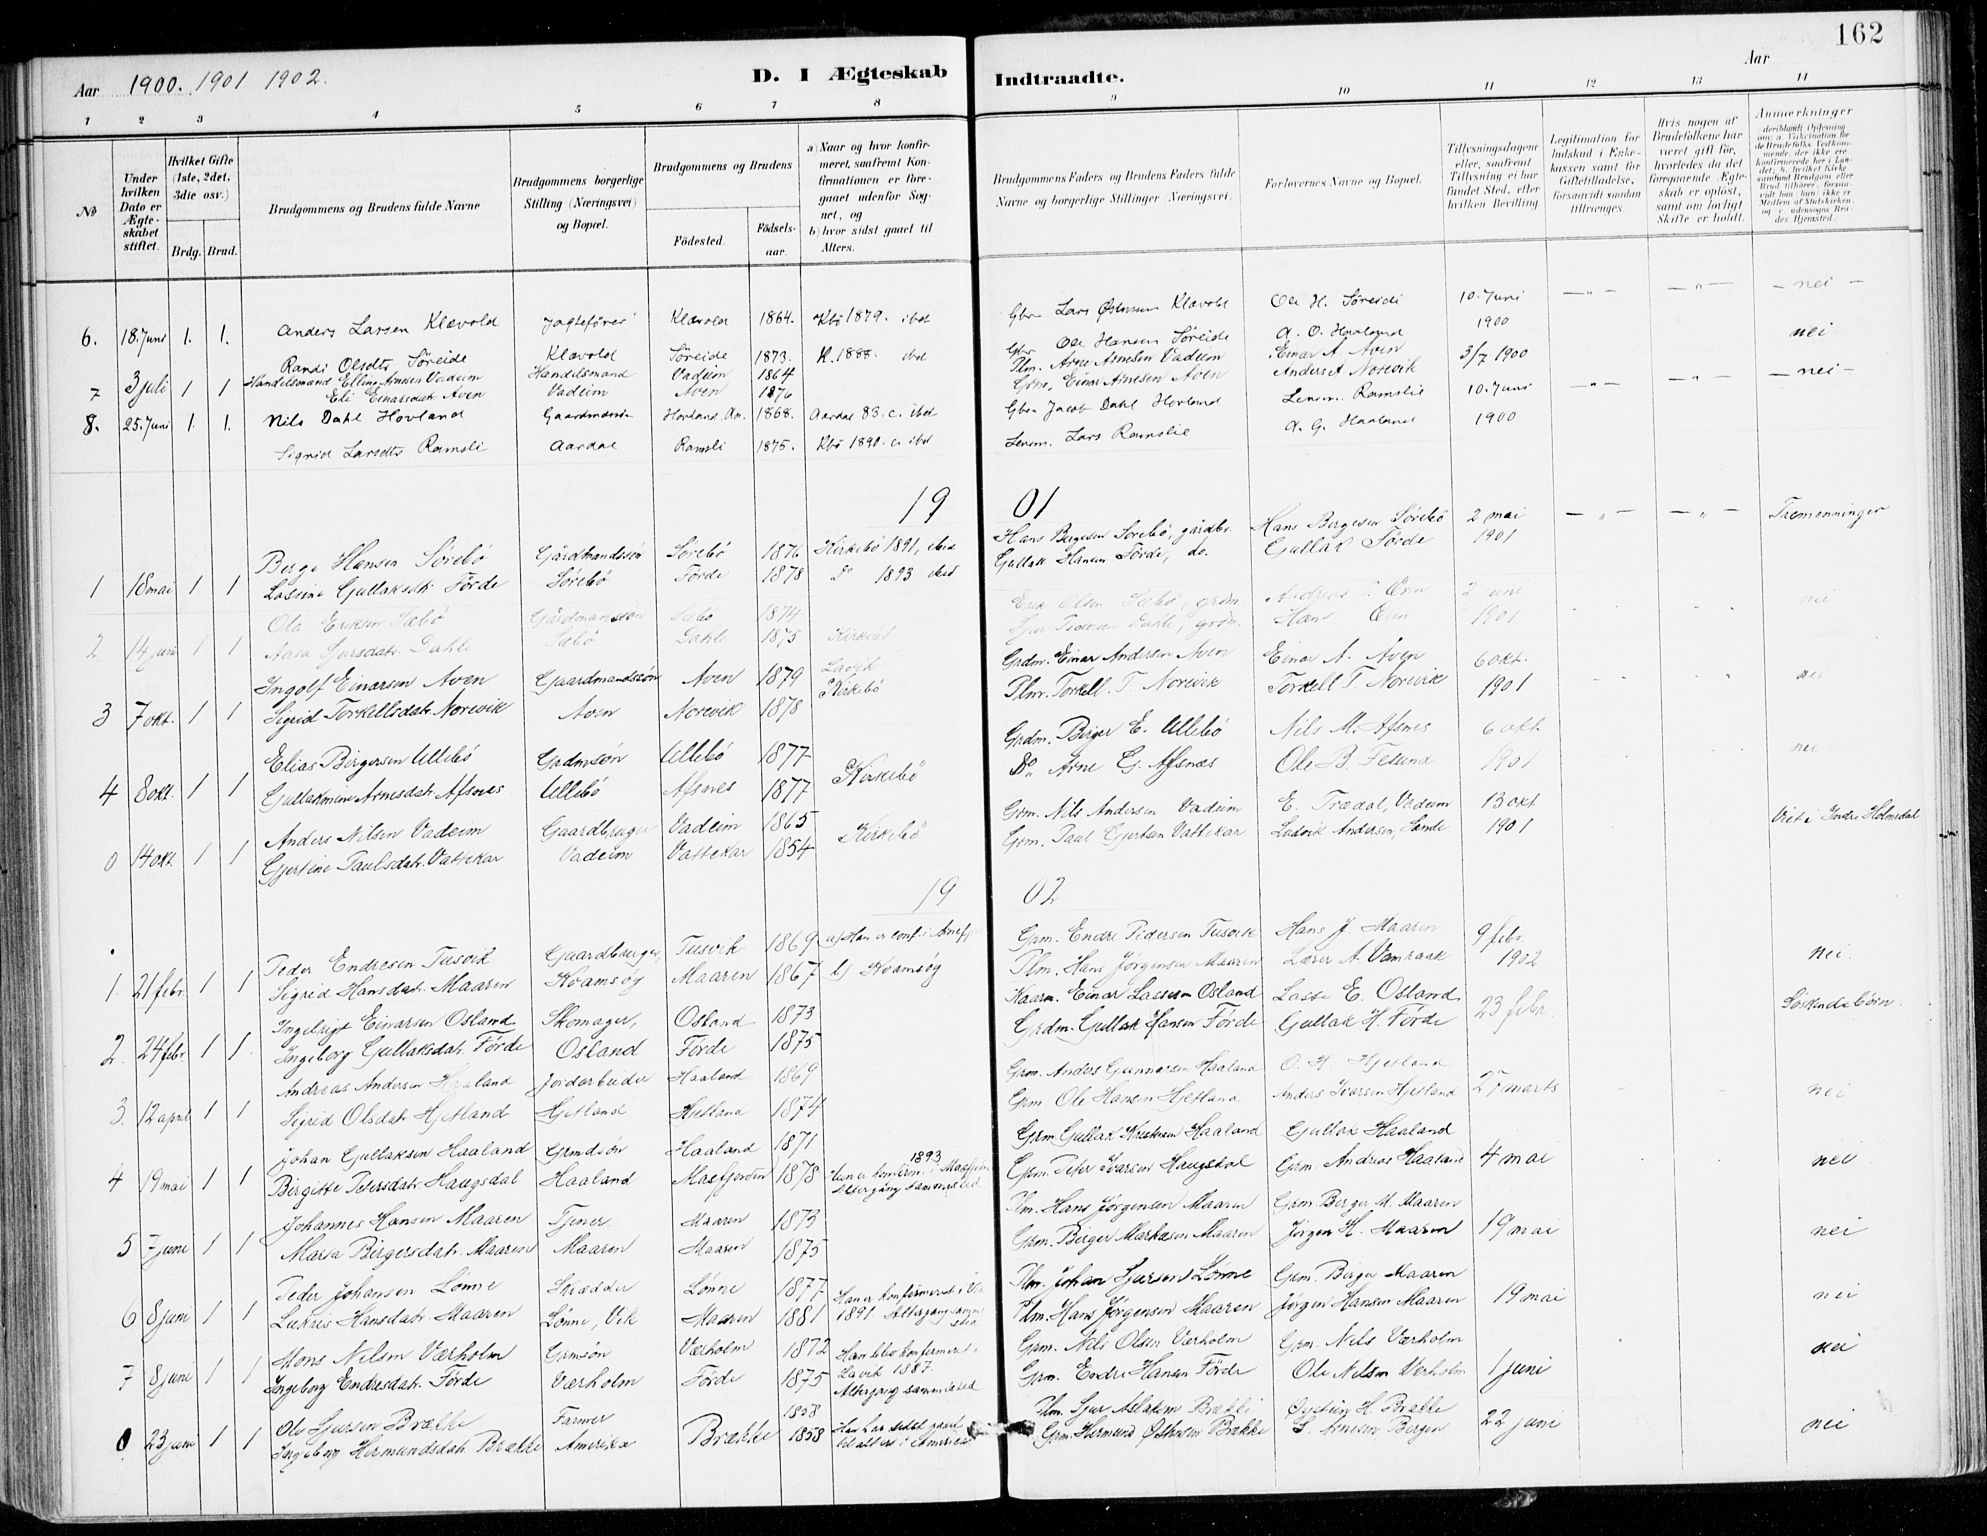 162
Aar 1900. 1901 1902.
D. I Ægteskab Indtraadte.
Aar
1 2 3 4 5 6 7 8 9 10 11 12 13 14
No
Under hvilken Dato er Ægteskabet stiftet.
Hvilket Gifte (1ste, 2det, 3die osv.)
Brdg. Brud.
Brudgommens og Brudens fulde Navne
Brudgommens borgerlige Stilling (Næringsvei) og Bopæl.
Brudgommens og Brudens
Födested. Födselsaar.
a) Naar og hvor konfirmeret, saafremt Konfirmationen er foregaaet udenfor Sognet, og
b) hvor sidst gaaet til Alters.
Brudgommens Faders og Brudens Faders fulde Navne og borgerlige Stillinger Næringsvei.
Forlovernes Navne og Bopæl.
Tillysningsdagene eller, saafremt Tillysning ei har fundet Sted, efter hvilken Bevilling.
Legitimation for Indskud i Enkekassen samt for Giftetilladelse, forsaavidt saadan tiltrænges.
Hvis nogen af Brudefolkene har været gift før, hvorledes da det foregaaende Ægteskab er opløst, samt om lovligt Skifte er holdt.
Anmerkninger
6. 18 Juni 1. 1. Anders Larsen Klævold Jagtefører Klævold 1864. Kbö 1879. ibd Gbr Lars Østensen Klævold Ole H. Søreide 10. Juni — " — — " — — nei —
Randi Olsdtr Søreide Klævold Søreide 1873. K. 1888. ibd Gbr Ole Hansen Søreide A. O. Haaland 1900 nei
7 3 juli 1 1 Handelsmand Elling Arnesen Vadeim Handelsmand Vadeim 1864 Plm. Arne Arnesen Vadeim Einar A. Aven 3/7 1900
Eli Einarsdatr Aven Vadeim Aven 1876 Grm. Einar Arnesen Aven Anders A Norevik — nei —
8. 25. Juni 1. 1. Nils Dahl Hovland Gaardmand Hovland Aa. 1868. Aardal 83. c. ibd Gbr Jacob Dahl Hovland Lensm. Ramslie 10. Juni — " — — " —
Sigrid Larsdtr Ramsli Aardal Ramsli 1875. Kbö 1890. c. ibd Lensm. Lars Ramslie A. G. Haaland 1900
1901
Berge Hansen Sörebö Gårdmandssön Sörebö 1876 Kirkebö 1891, ibid Hans Bergesen Sörebö, gårdbr. Hans Bergesen Sörebö 2 mai — " — — " — Tremenninger
1 18 mai 1 1 Lassine Gullaksdtr Förde Sörebö Förde 1878 Do 1893 ibid Gullak Hansen Förde, do. Gullak Förde 1901
Ola Eriksen Sæbö Gårdmandssön Sæbö 1874 Erik Olsen Sæbö, grdm. 2 juni nei
2 14 juni 1 1 Sjursdatr. Dahle Sæbö Dahle 1875 Kirkebö Dahle, grdm. Hans 1901
Ingolf Einarsen Aven Gaardmandssön Aven 1879 Lavik Grdm. Einar Andersen Aven Einar A. Aven 6 okt. nei
3 7 okt. 1 1 Sigrid Torkellsdatr. Norevik Aven Norevik 1878 Kirkebö Plm. Torkell T. Norevik Torkell T. Norevik 1901
Elias Birgersen Ullebö Grdmsön Ullebö 1877 Grdm. Birger E. Ullebö Nils M. Afsnes 6 okt nei
4 8 okt. 1 1 Gullakmine Arnesdatr. Afsnes Ullebö Afsnes 1877 Kirkebö Do. Arne G. Afsnæs Ole B. 1901
Anders Nilsen Vadeim Gaardbruger Vadeim 1865 Kirkebö Grm. Nils Andersen Vadeim E. Trædal, Vadeim 13 okt Viet i Indre Holmedal
0 14 okt. 1 1 Gjertine Paulsdatr. Vattekar Vadeim Vattekar 1854 Grm. Paul Gjertsen Vattekar Ludvik Andersen, 1901
1902
Peder Endresen Tusvik Gaardbruger, Tusvik 1869 Grm. Endre Pedersen Tusvik Hans J. Maaren 9 febr. nei.
1. 21 febr. 1 1 Sigrid Hansdatr. Maaren Kvamsøg Maaren 1867 b) Kvamsøg Plm. Hans Jørgensen Maaren Lærer A. Vamraak 1902
Ingebrigt Einarsen Osland Skomager, Osland 1873 Kaarm. Einar Lassesen Osland Lasse E. Osland 23 febr. Söskendebörn.
2. 24 febr 1 1. Ingeborg Gullaksdatr. Förde Osland Förde 1875 Grdm. Gullak Hansen Förde Gullak H. Förde
Andreas Andersen Haaland Jordarbeider Haaland 1869 Grm. Anders Gunnarsen Haaland O. H. Hjetland 27 marts nei
3. 12 april 1 1 Sigrid Olsdatr Hjetland Hjetland Hjetland 1874 Grm. Ole Hansen Hjetland Anders Ivarsen Hjetland
Johan Gullaksen Haaland Grmdsön Haaland 1871 1893 Grm. Gullak Haaland Gullak Haaland
4 19 mai 1 1 Birgitte Petersdatr Haugsdal Haaland Masfjorden 1878 Hun er konfirm. i Masfjorden Altergång sammesteds Grm. Peter Ivarsen Haugsdal Grm. Andreas Haaland 4 mai nei
Johannes Hansen Maaren Tjener. Maaren 1873 Plm. Hans Jørgensen Maaren Grm. Berge M. Maaren
5 7 juni 1 1 Marta Birgersdatr. Maaren Maaren Maaren 1875 Grm. Birger Markusen Maaren Jörgen H. Maaren 19 mai nei
Peder Johansen Lönne Skrædder Lönne 1877 Han er konfirmeret i Vik Plm. Johan Sjursen Lönne Grm. Birger Maaren
6 8 juni 1 1 Lukris Hansdatr. Maaren Lönne, Vik Maaren 1881 1891 Altergang samme sted Plm. Hans Jørgensen Maaren Jørgen Hansen Maaren 19 mai nei
Mons Nilsen Værholm Grmsön Værholm 1872 Han blev konfirmeret i Grm. Nils Olsen Værholm Grm. Nils Værholm nei
7 8 juni 1 1 Ingeborg Endresdatr. Förde Værholm Förde 1875 Lavik 1887. Altergang sammesteds Grm. Endre Hansen Förde Ole Nilsen Værholm 1 juni
Ole Sjursen Brække Farmer 1858 Han har sidst gaaet Plm. Sjur Aslaksen Brække Øystein H Brække 22 juni nei
0 23 juni 1 1 Ingeborg Hermundsdatr Brække Amerika Brække 1858 til alters i Amerika Grm. Hermund Østensen Brække Arnesen Bergen